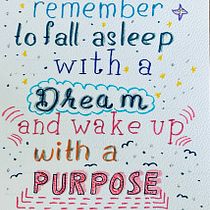 remember
to fall asleep
with a
Dream
and wake up
with a
PURPOSE